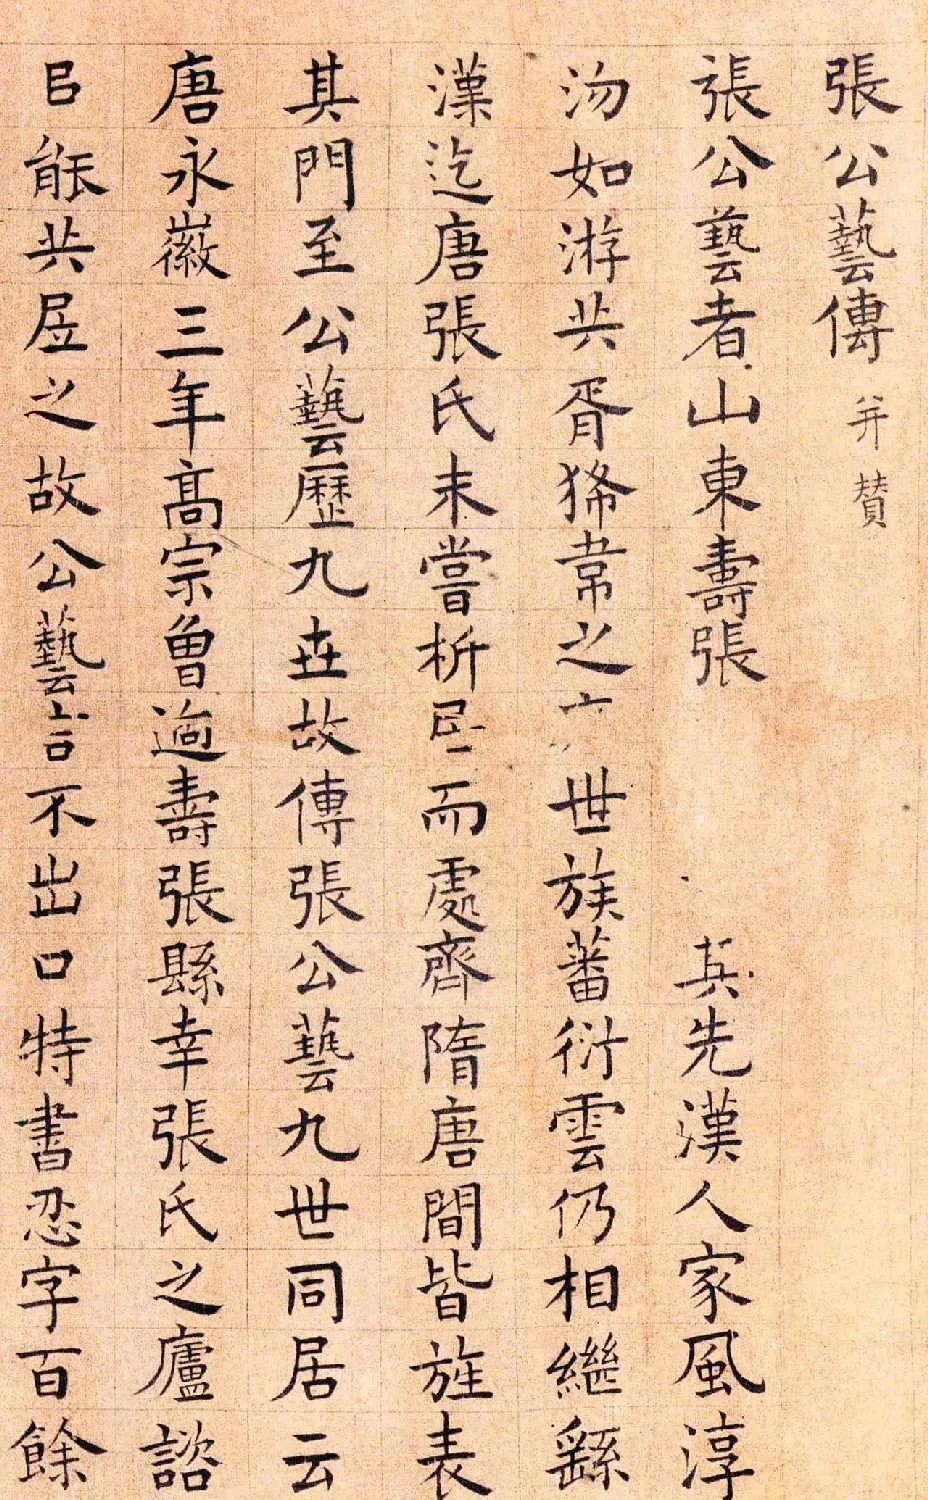 張公藝傳 并贊
張公藝者山東壽張 其先漢人家風淳
沕如游共胥狶韋之 世族蕃衍雲仍相繼繇
漢迄唐張氏未嘗析居而處齊隋唐間皆旌表
其門至公藝歷九世故傳張公藝九世同居云
唐永徽三年高宗魯過壽張縣幸張氏之廬諮
㠯能共居之故公藝言不出口特書忍字百餘